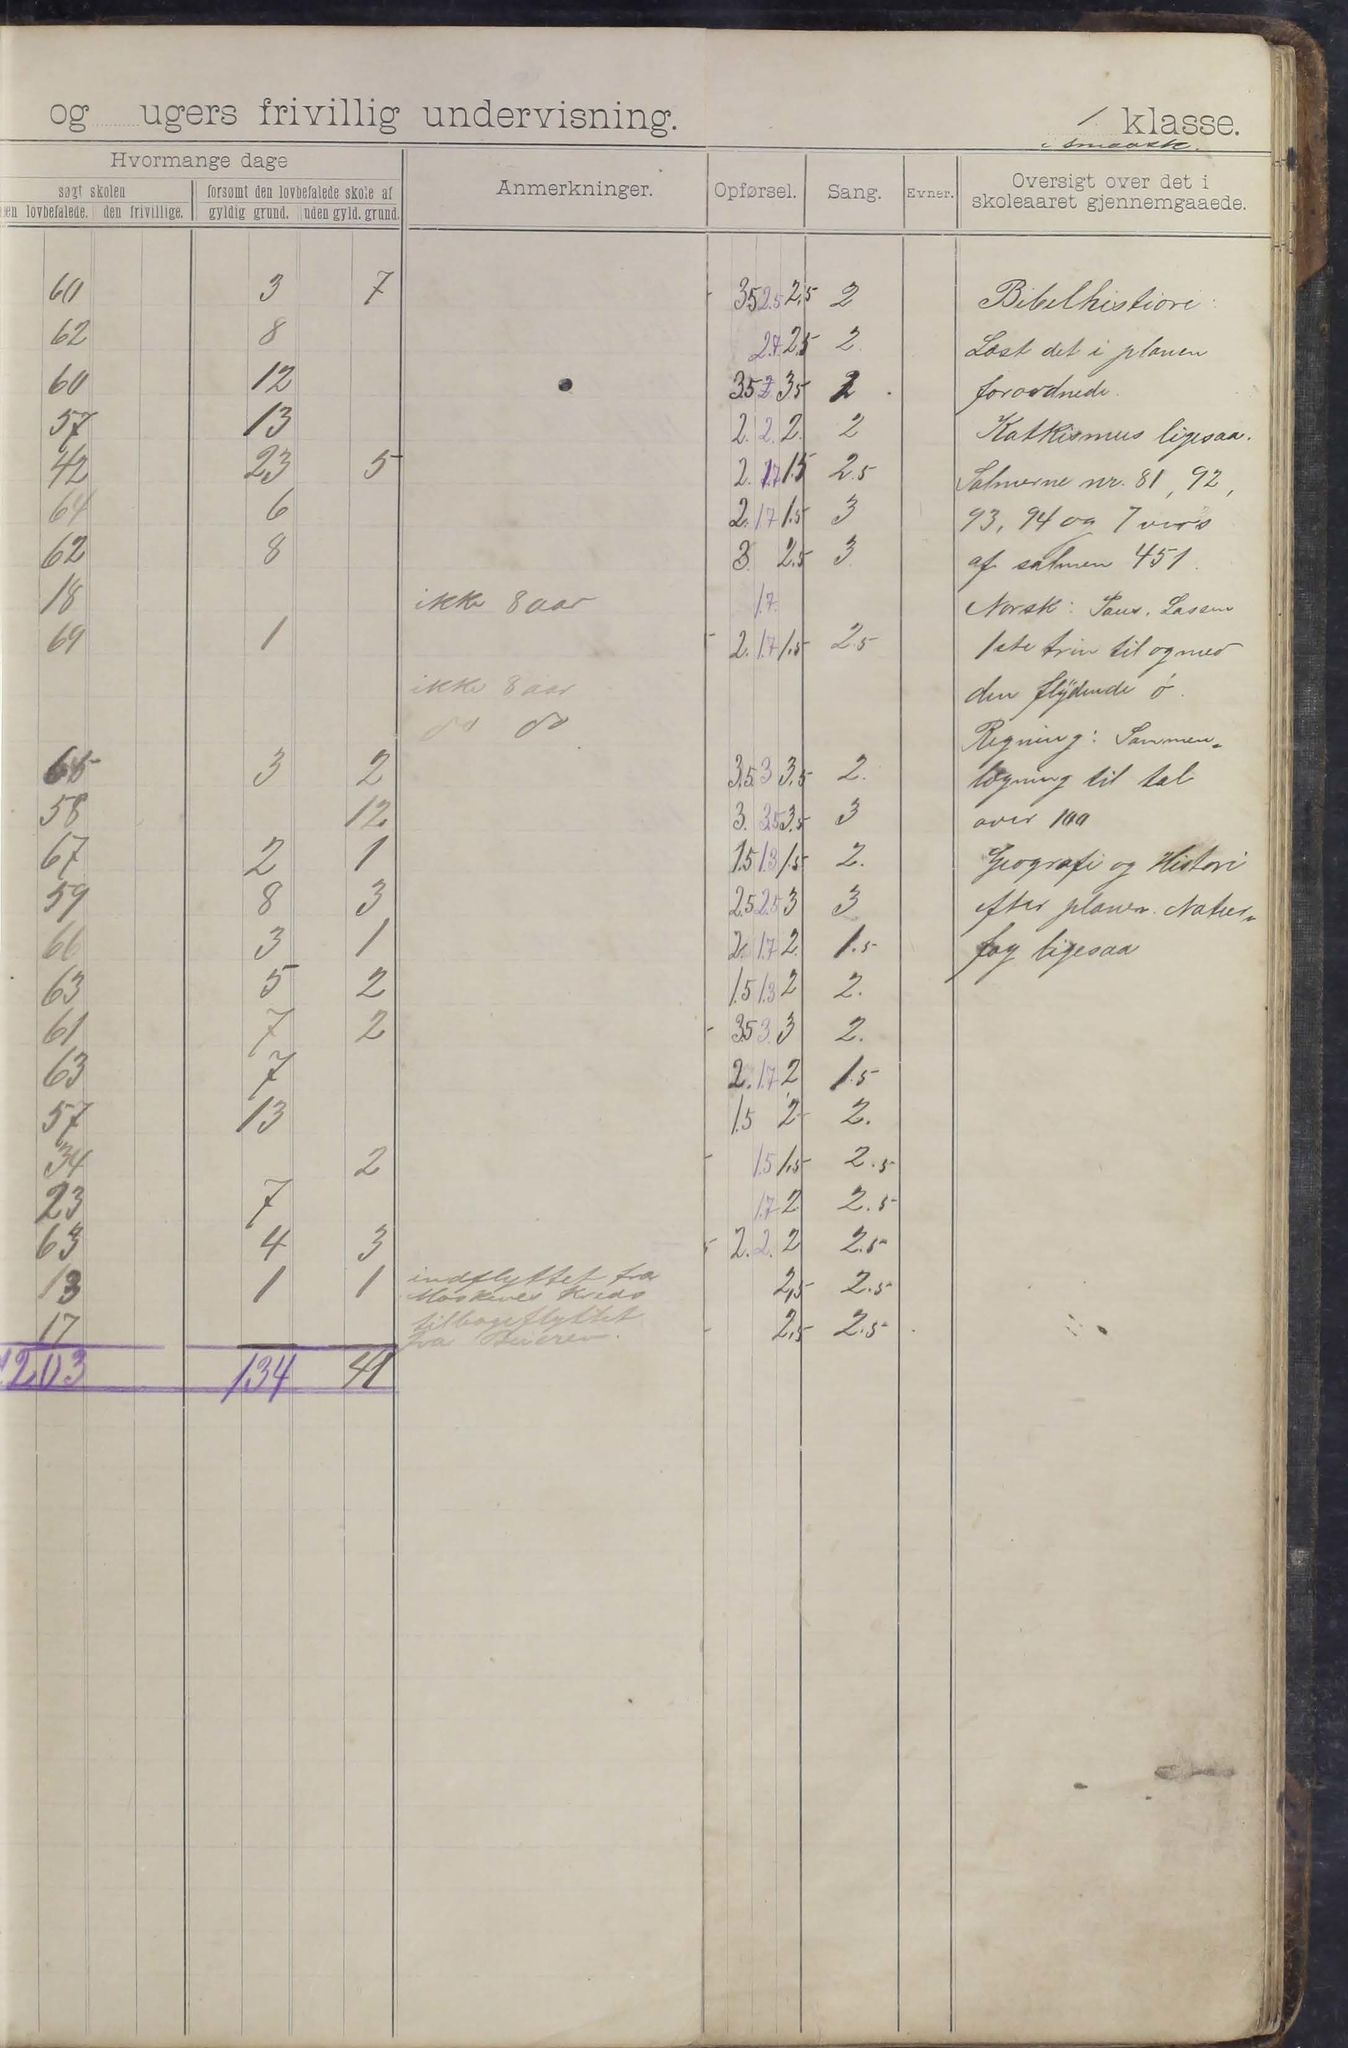 og ugers frivillig undervisning. 1 klasse.
i smaask.
Hvormange dage
søgt skolen
den lovbefalede. den frivillige.
forsømt den lovbefalede skole af
gyldig grund. uden gyld. grund.
Anmerkninger.
Opførsel. Sang. Evner.
Oversigt over det i
skoleaaret gjennemgaaede.
60 3 7 3.5 2.5 2.5 2 Bibelhistiore:
62 8 2.5 2. Læst det i planen
60 12 3.5 2 3.5 2 forordnede.
57 13 2. 2. 2. 2 Katkismus ligesaa.
42 23 5 2. 1.7 1.5 2.5 Salmerne nr. 81, 92,
64 6 2. 1.7 1.5 3 93, 94 og 7 vers
62 8 3. 2.5 3. af salmen 451.
18 ikke 8 aar 1.7 Norsk: Paus. Lassen
69 1 2. 1.7 1.5 2.5 1ste trin til og med
ikke 8 aar den flÿdende ö.
do do Regning: Sammen-
65 3 2 3.5 3 3.5 2. lægning til tal
58 12 3. 3.5 3.5 3 over 100
67 2 1 1.5 1.3 1.5 2. Geografi og Histori
59 8 3 2.5 2.5 3 3 efter planen. Natur-
66 3 1 2. 1.7 2 1.5 fag ligesaa
63 5 2 1.5 1.3 2 2.
61 7 2 3.5 3. 3 2.
63 7 2. 1.7 2 1.5
57 13 1.5 2 2.
34 2 1.5 1.5 2.5
23 7 1.7 2 2.5
63 4 3 2. 2. 2 2.5
13 1 1 indflyttet fra 2,5 2.5
Moskenes Kreds
17 tilbageflyttet 2,5 2.5
fra
1203 134 41